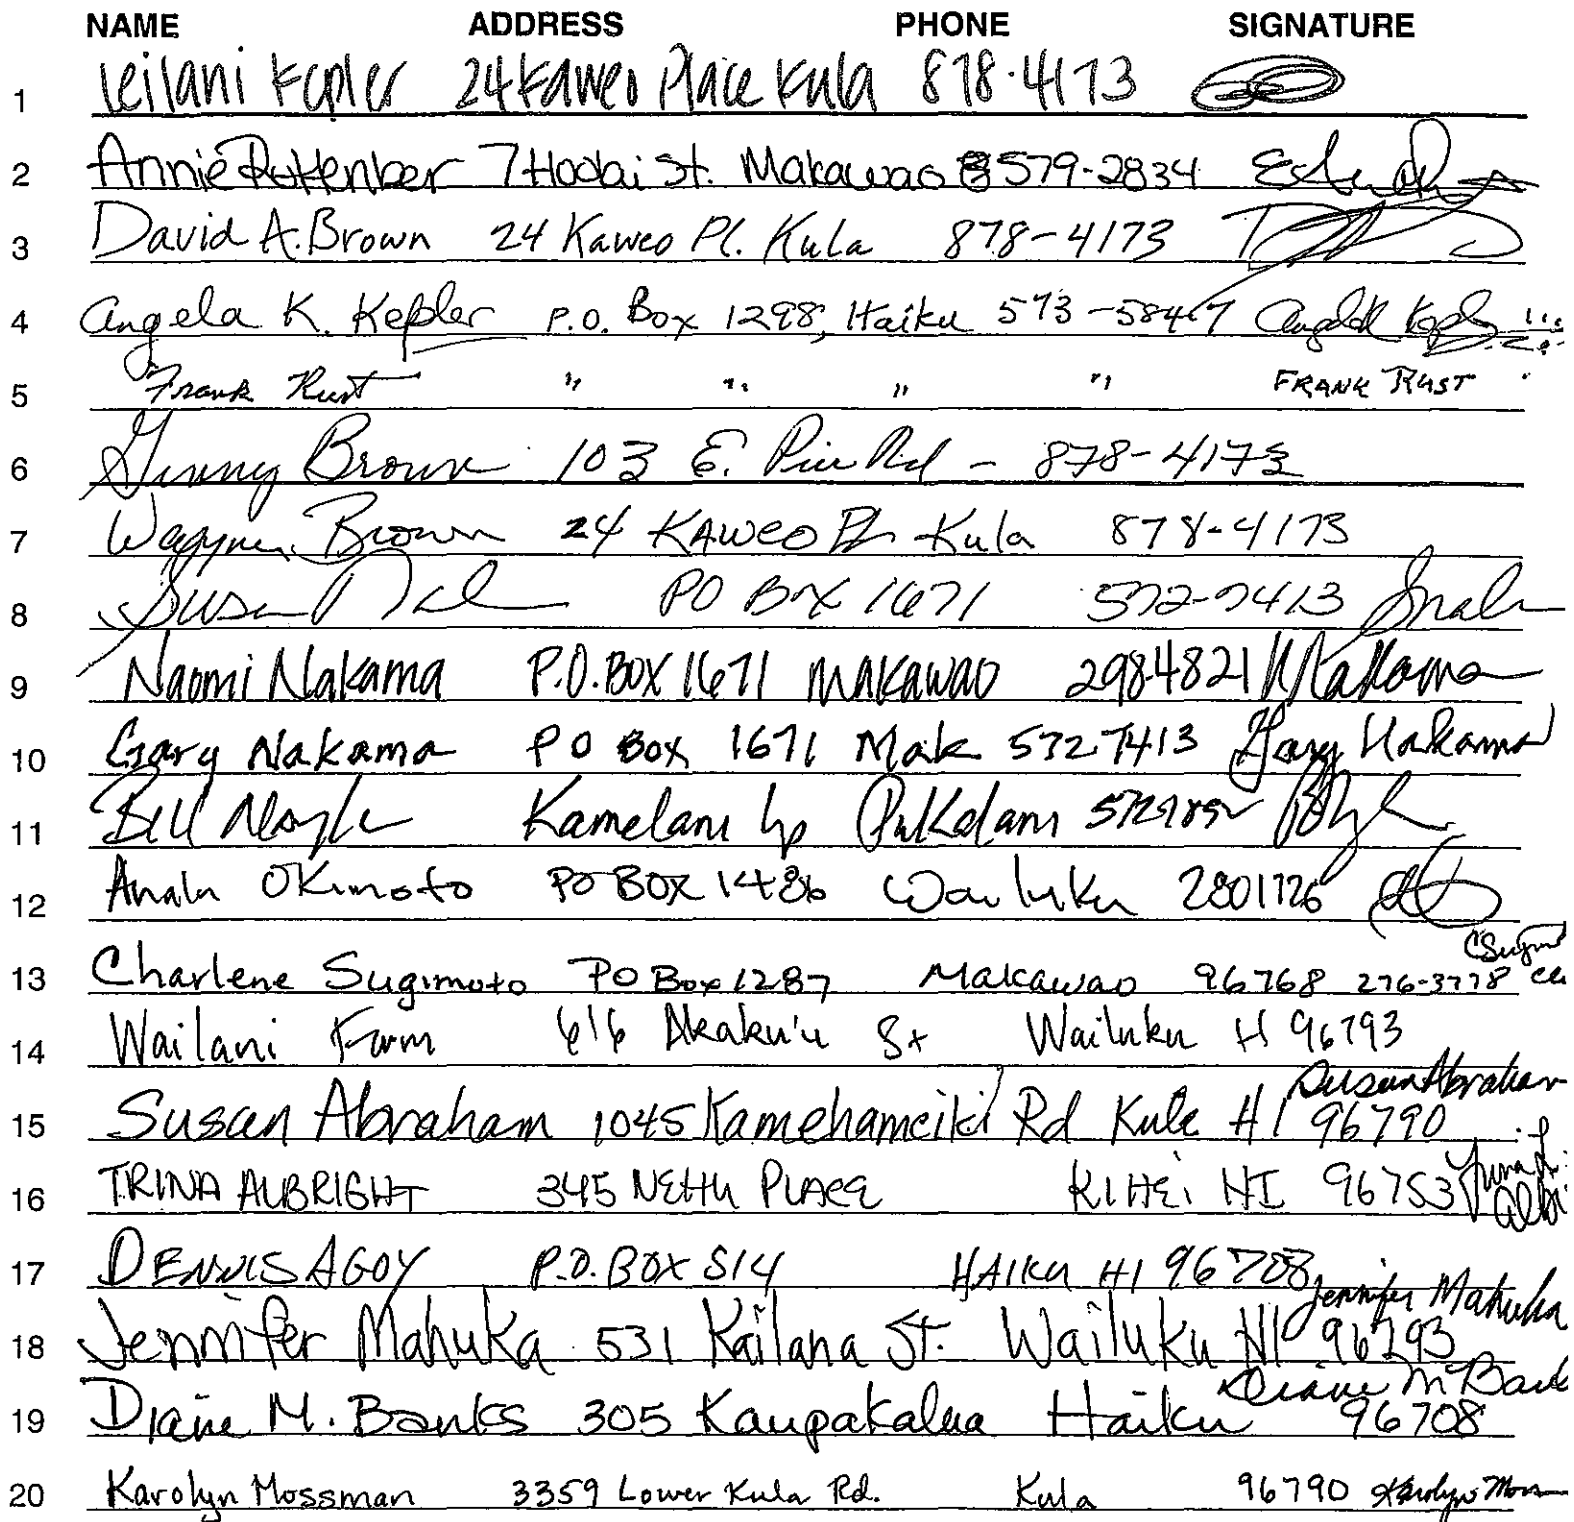 NAME ADDRESS PHONE SIGNATURE
1 Leilani Kepler 24 Kaweo Place Kula 878-4173
2 Annie 7 St. Makawao 579-2834
3 David A. Brown 24 Kaweo Pl. Kula 878-4173
4 Angela K. Kepler P.O. Box 1298, Haiku 573-5847
5 Frank Rust " " " " FRANK RUST
6 Ginny Brown 103 E. Rd - 878-4173
7 Brown 24 KAWEO Pl Kula 878-4173
8 Susan PO BOX 1671 572-7413
9 Naomi Nakama P.O. BOX 1671 MAKAWAO 298-4821 NNakama
10 Gary Nakama PO Box 1671 Mak 572 7413 Gary Nakama
11 Bill Pukalani
12 Okimoto PO BOX 1486 Wailuku 2801726
13 Charlene Sugimoto PO Box 1287 Makawao 96768 276-3778
14 Wailani 616 Akaku'u St Wailuku H 96793
15 Susan Abraham 1045 Kamehameiki Rd Kula HI 96790 Susan Abraham
16 TRINA ALBRIGHT 345 PLACE KIHEI HI 96753
17 DENNIS AGOY P.O. BOX 514 HAIKU HI 96708
18 Jennifer Mahuka 531 Kailana St. Wailuku HI 96793 Jennifer Mahuka
19 Diane M. Banks 305 Kaupakalua Haiku 96708 Diane M Bank
20 Karolyn Mossman 3359 Lower Kula Rd. Kula 96790 Karolyn Moss